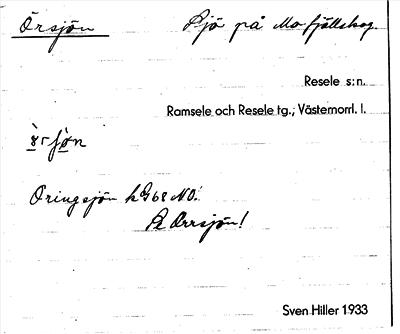 Örsjön Sjö på Mo fjällskog.
Resele s:n.
Ramsele och Resele tg.; Västernorrl. l.
Öringsjön k G 68 NO.
Se Orrsjön!
Sven Hiller 1933